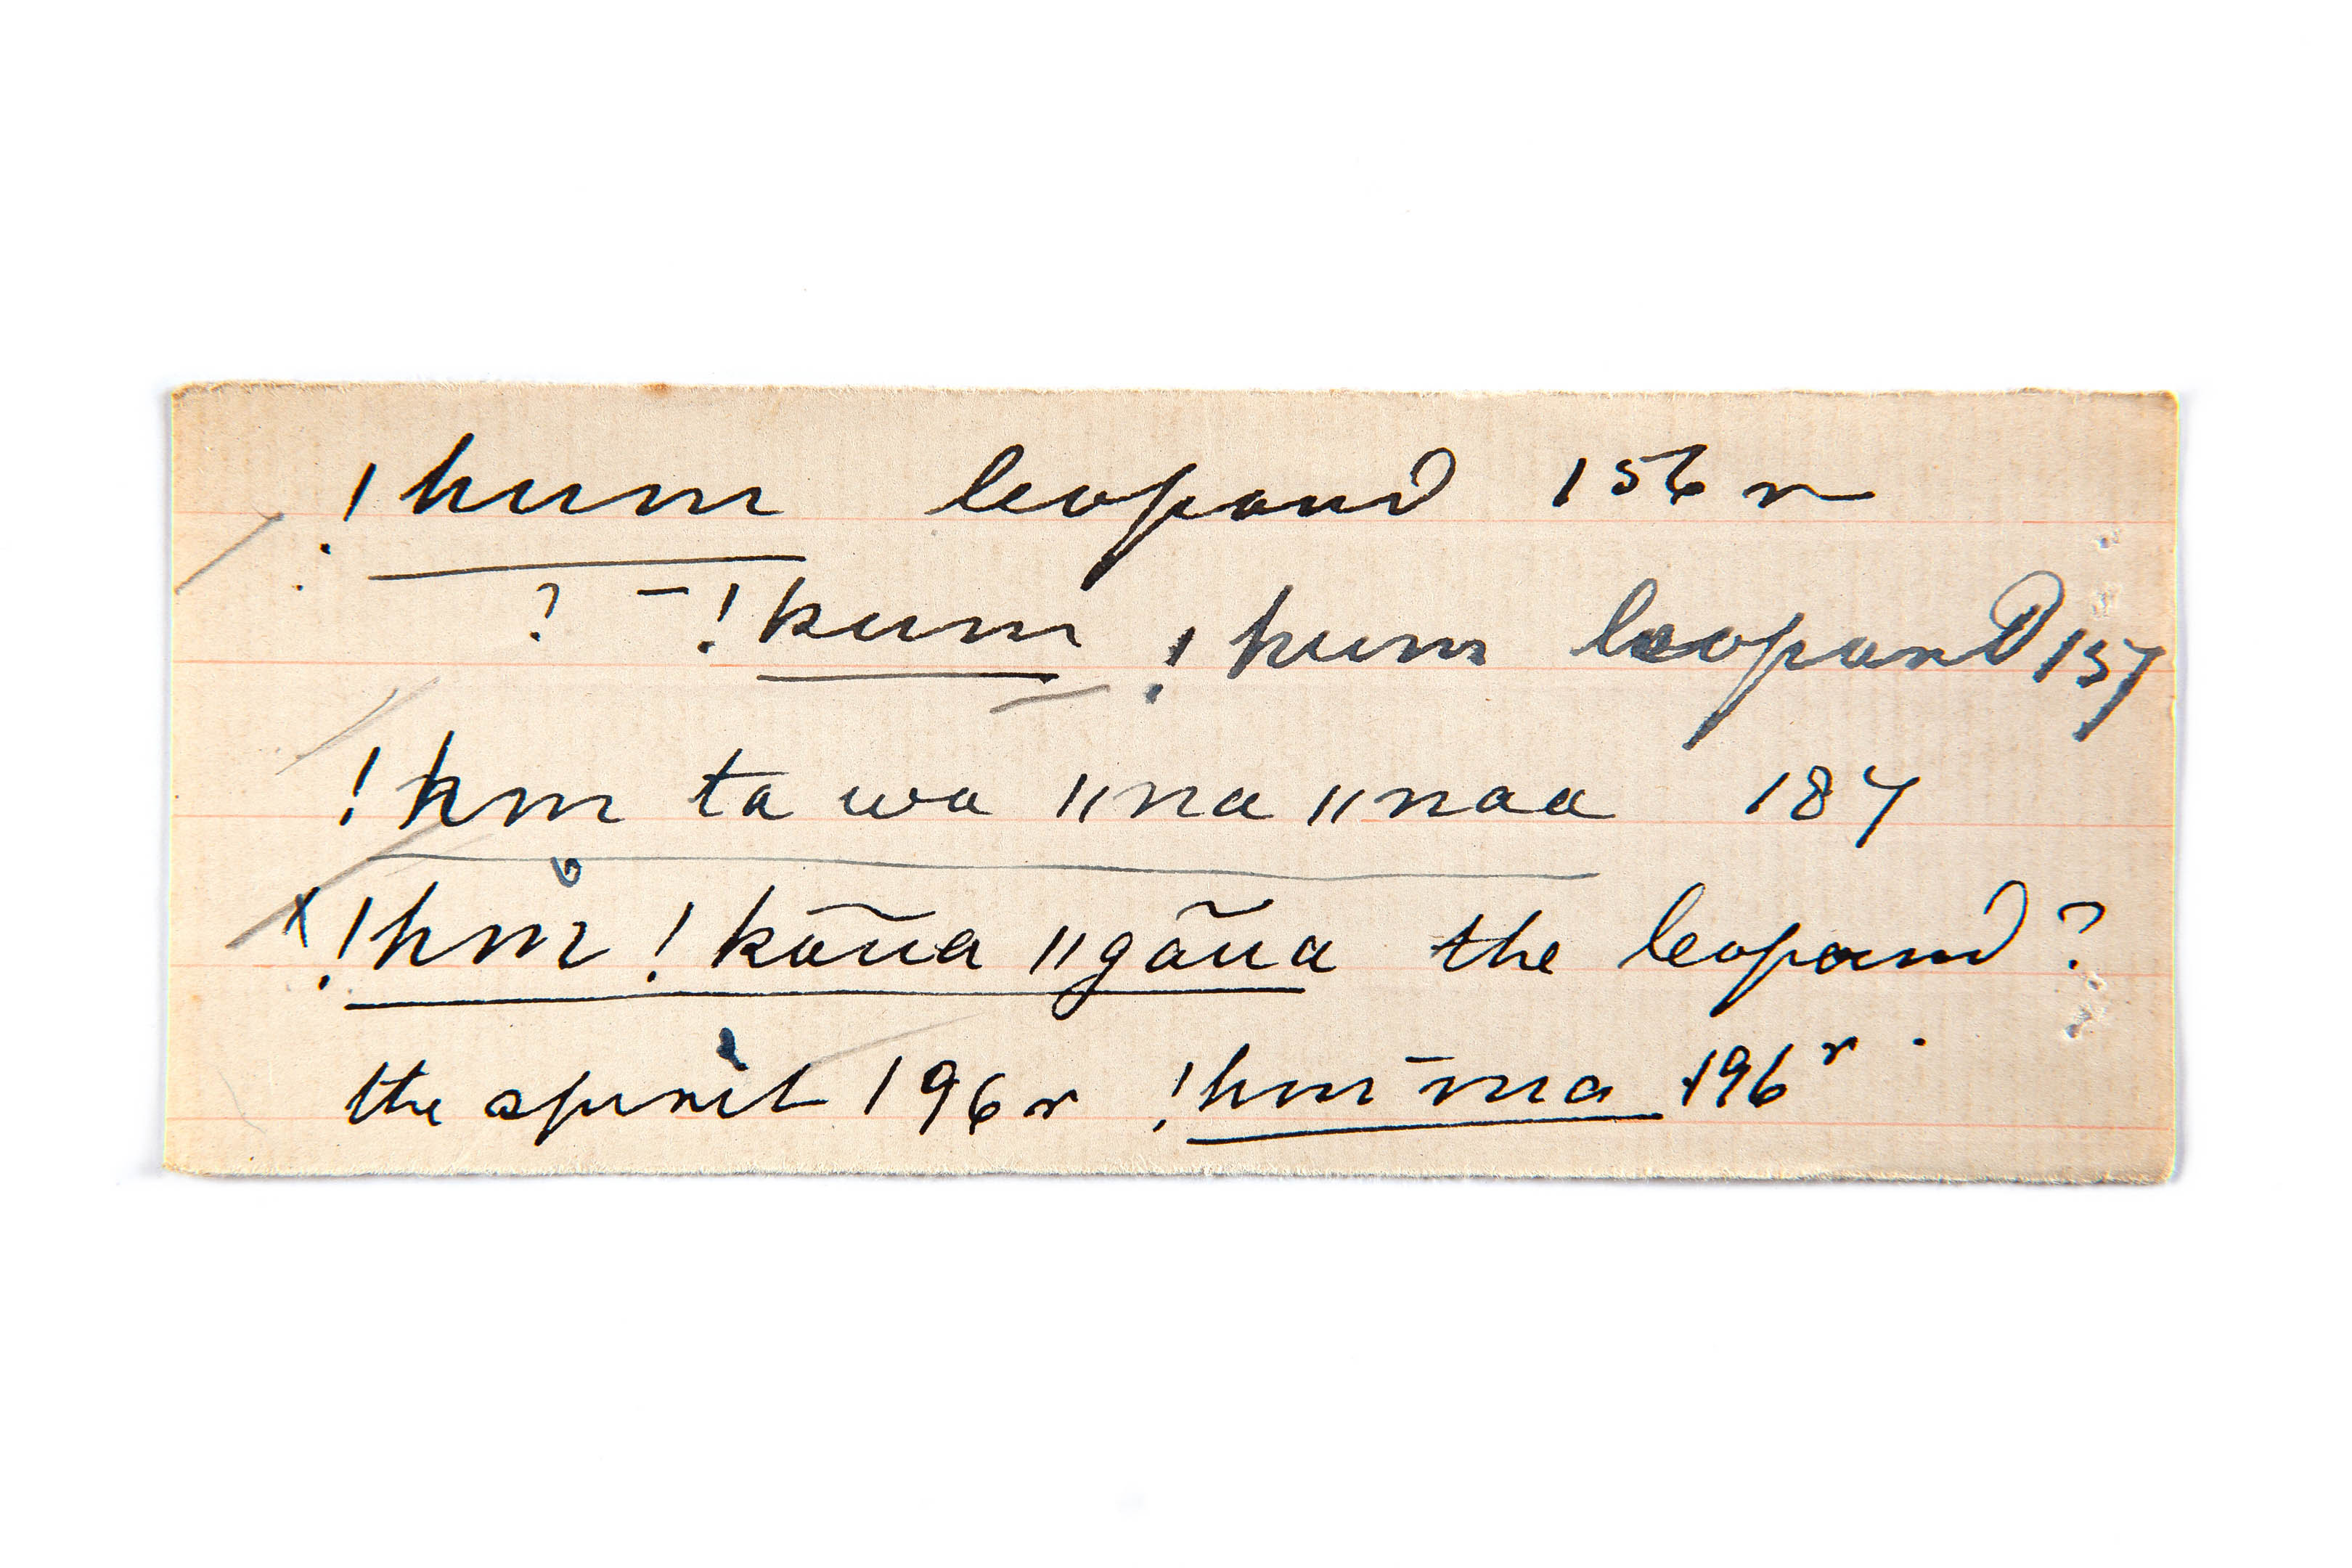 !hum leopard 156 r
? - !kum !hum leopard 157
!hm ta wa ǁna ǁnaa 187
!hm̊ !kãũa ǁgãũa the leopard ?
the spirit 196 r !hm̄ma 196 r.